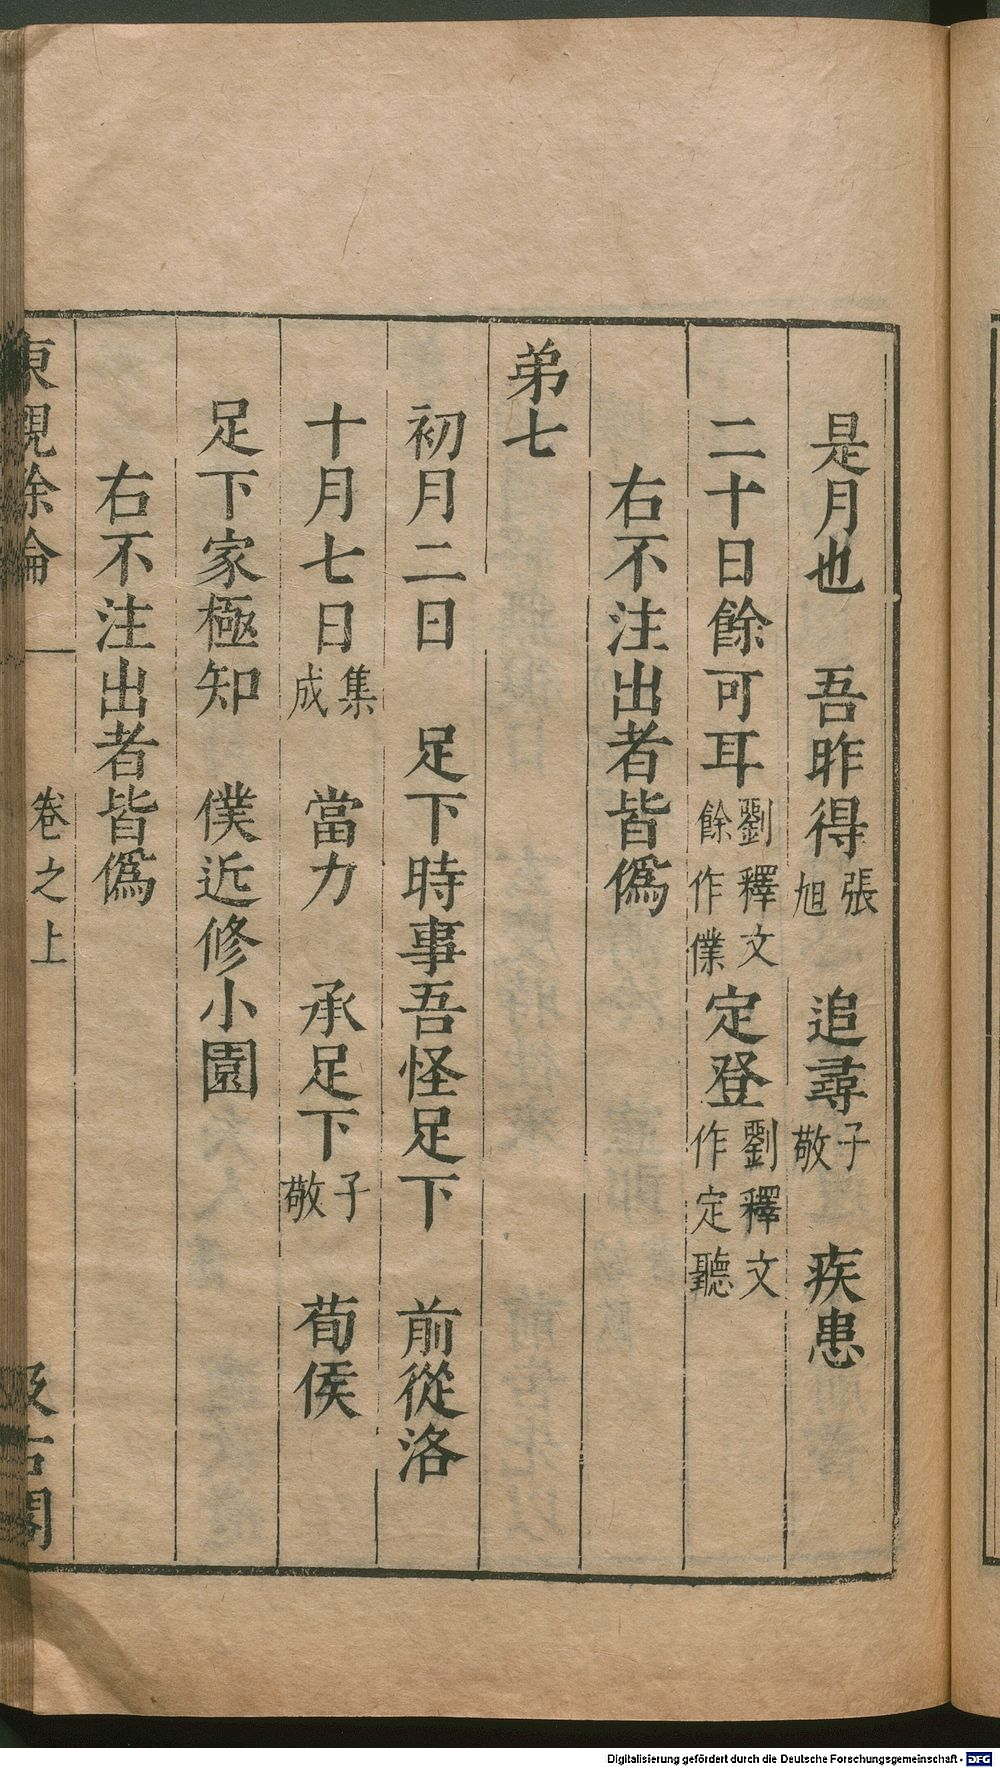 是月也　吾昨得張旭　追尋子敬　疾患
二十日餘可耳劉釋文餘作僕定登劉釋文作定聽
右不注出者皆僞
弟七
初月二日　足下時事吾怪足下　前從洛
十月七日集成　當力　承足下子敬　荀侯
足下家極知　僕近修小園
右不注出者皆僞
東觀餘論　卷之上　汲古閣
Digitalisierung gefördert durch die Deutsche Forschungsgemeinschaft - DFG